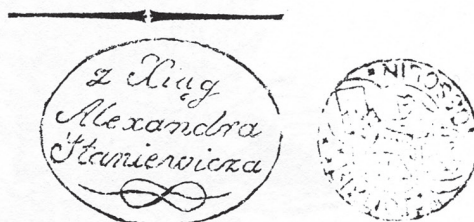 z Xiąg
Alexandra
Staniewicza